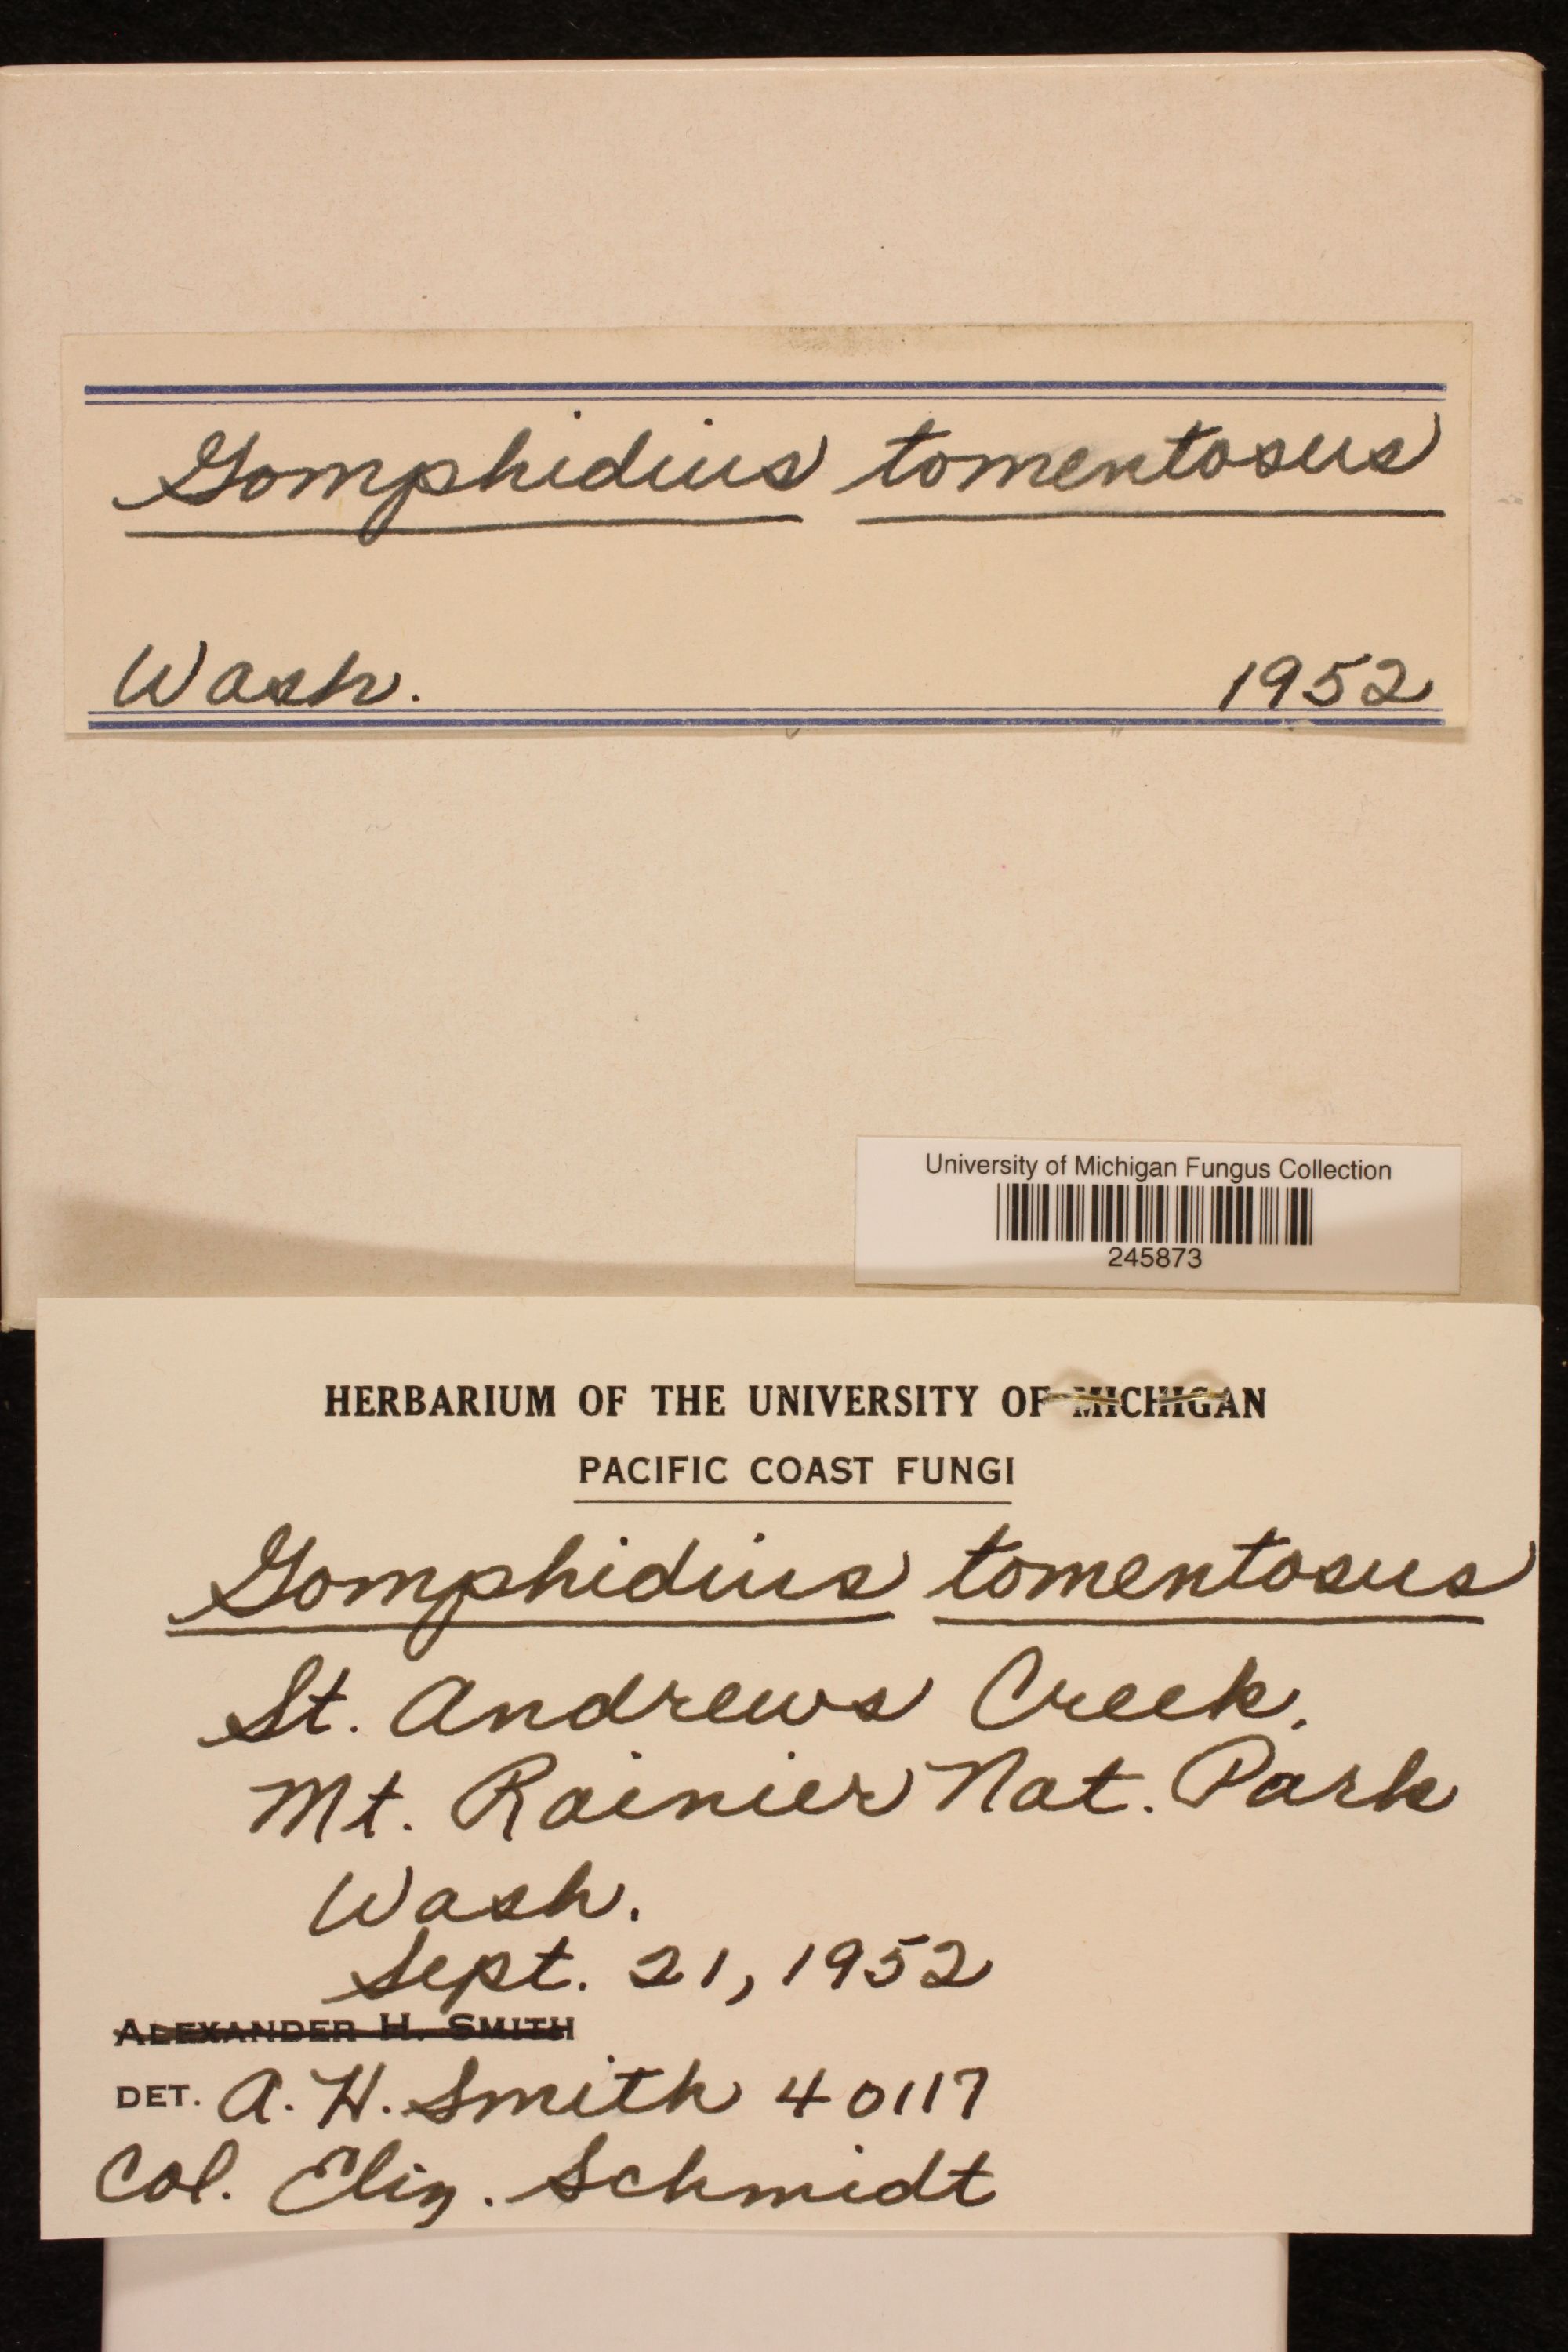 Gomphidius tomentosus
Wash. 1952
University of Michigan Fungus Collection
245873
HERBARIUM OF THE UNIVERSITY OF MICHIGAN
PACIFIC COAST FUNGI
Gomphidius tomentosus
St. Andrews Creek,
Mt. Rainier Nat. Park
Wash.
Sept. 21, 1952
ALEXANDER H. SMITH
DET. A. H. Smith 40117
Col. Eliz. Schmidt